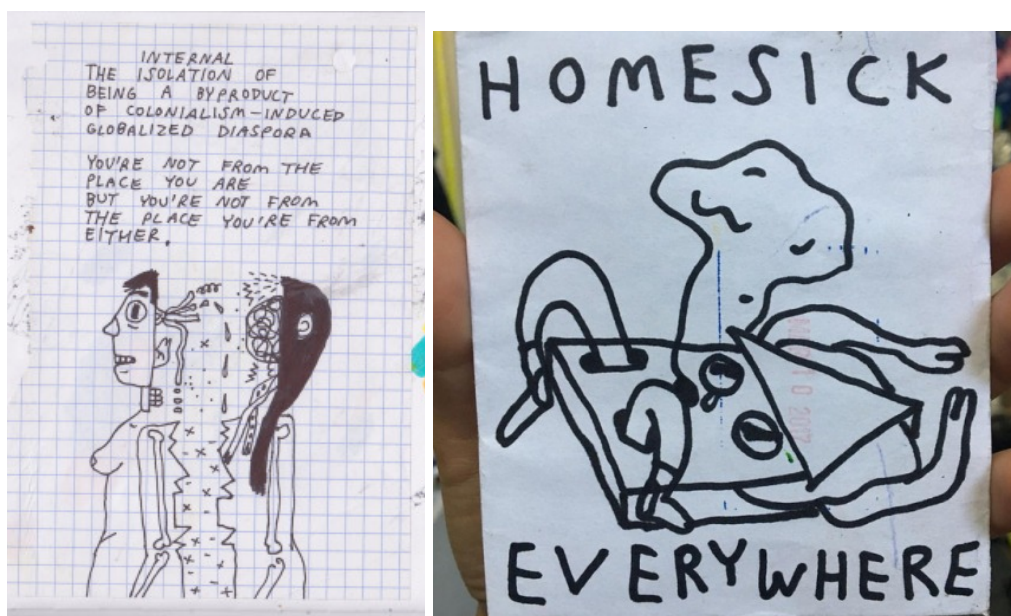 INTERNAL
THE ISOLATION OF
BEING A BYPRODUCT
OF COLONIALISM-INDUCED
GLOBALIZED DIASPORA
YOU'RE NOT FROM THE
PLACE YOU ARE
BUT YOU'RE NOT FROM
THE PLACE YOU'RE FROM
EITHER.
HOMESICK
2017
EVERYWHERE